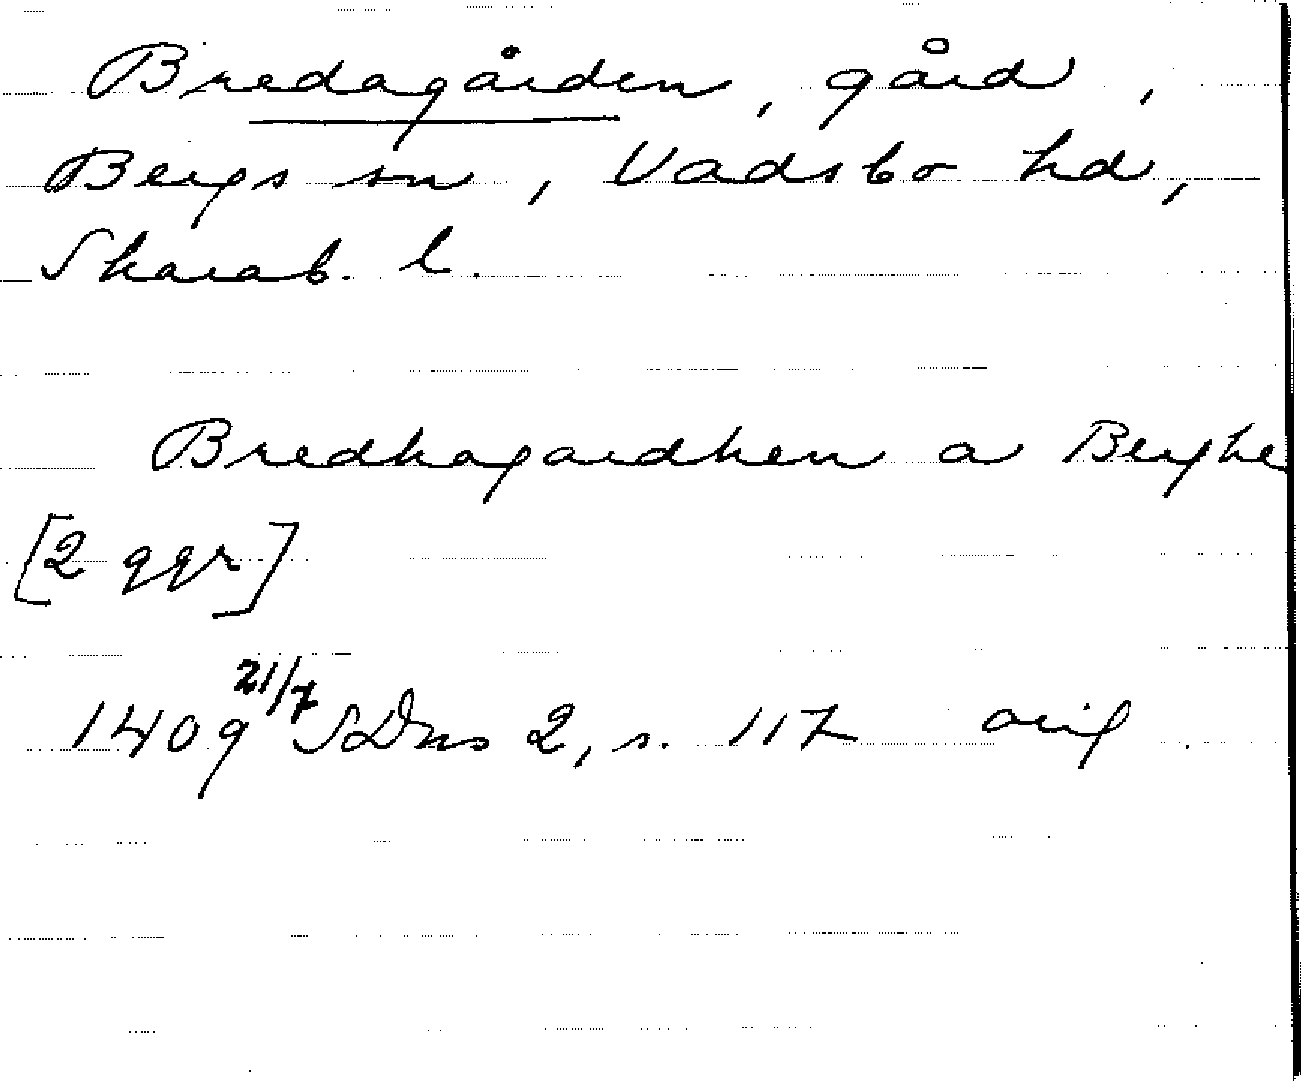 Bredagården, gård,
Bergs sn, Vadsbo hd,
Skarab. l.
Bredhagardhen a Berghe
[2 ggr]
1409 21/7 SDns 2, s. 117 orig